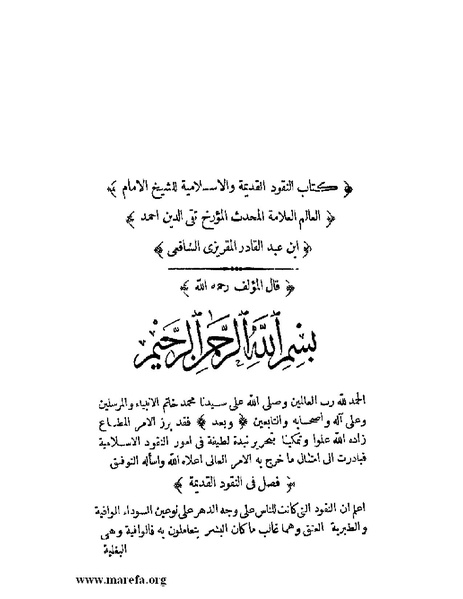 ﴿ كتاب النقود القديمة والاسلامية للشيخ الامام ﴾
﴿ العالم العلامة المحدث المؤرخ تقى الدين احمد ﴾
﴿ ابن عبد القادر المقريزى الشافعى ﴾
﴿ قال المؤلف رحمه الله ﴾
بسم الله الرحمن الرحيم
الحمد لله رب العالمين وصلى الله على سيدنا محمد خاتم الانبياء والمرسلين
وعلى آله واصحابه والتابعين ﴿ وبعد ﴾ فقد برز الامر المطاع
زاده الله علوا وتمكينا بتحرير نبذة لطيفة فى امور النقود الاسلامية
فبادرت الى امتثال ما خرج به الامر العالى اعلاه الله واسأله التوفيق
﴿ فصل فى النقود القديمة ﴾
اعلم ان النقود التى كانت للناس على وجه الدهر على نوعين السوداء الوافية
والطبرية العتق وهما غالب ما كان البشر يتعاملون به فالوافية وهى
البغلية
www.marefa.org